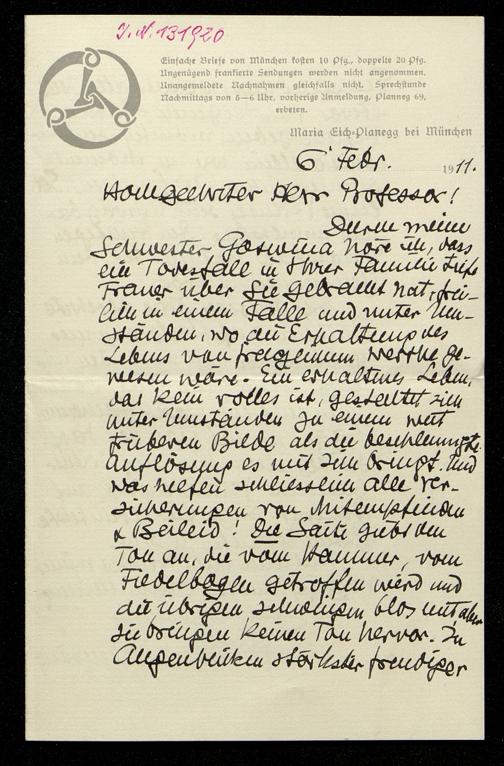 J. N. 131920
Einfache Briefe von München kosten 10 Pfg., doppelte 20 Pfg.
Ungenügend frankierte Sendungen werden nicht angenommen.
Unangemeldete Nachnahmen gleichfalls nicht. Sprechstunde
Nachmittags von 5–6 Uhr, vorherige Anmeldung, Planegg 69,
erbeten.
Maria Eich-Planegg bei München
6 Febr. 1911.
Hochgeehrter Herr Professor!
Durch meine
Schwester Goswina höre ich, dass
ein Todesfall in Ihrer Familie tiefe
Trauer über Sie gebracht hat, frei-
lich in einem Falle und unter Um-
ständen, wo die Erhaltung des
Lebens von fraglichem Werthe ge-
wesen wäre. Ein erhaltenes Leben,
das kein volles ist, gestaltet sich
unter Umständen zu einem weit
trüberen Bilde als die beschleunigte
Auflösung es mit sich bringt. Und
was helfen schliesslich alle Ver-
sicherungen von Mitempfinden
& Beileid! Die Saite giebt den
Ton an, die vom Hammer, vom
Fiedelbogen getroffen wird und
die übrigen schwingen blos mit aber
sie bringen keinen Ton hervor. In
Augenblicken stärkster freudiger